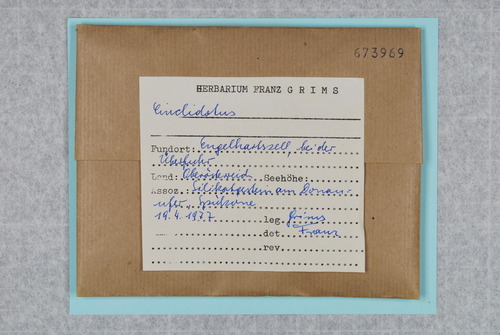 673969
HERBARIUM FRANZ GRIMS
Cinclidotus
Fundort: Engelhartszell, bei der
Überfuhr
Land: Oberösterreich Seehöhe:
Assoz. Silikatgestein am Donau-
ufer, Spülzone
19.4.1977 leg. Grims
det. Franz
rev.